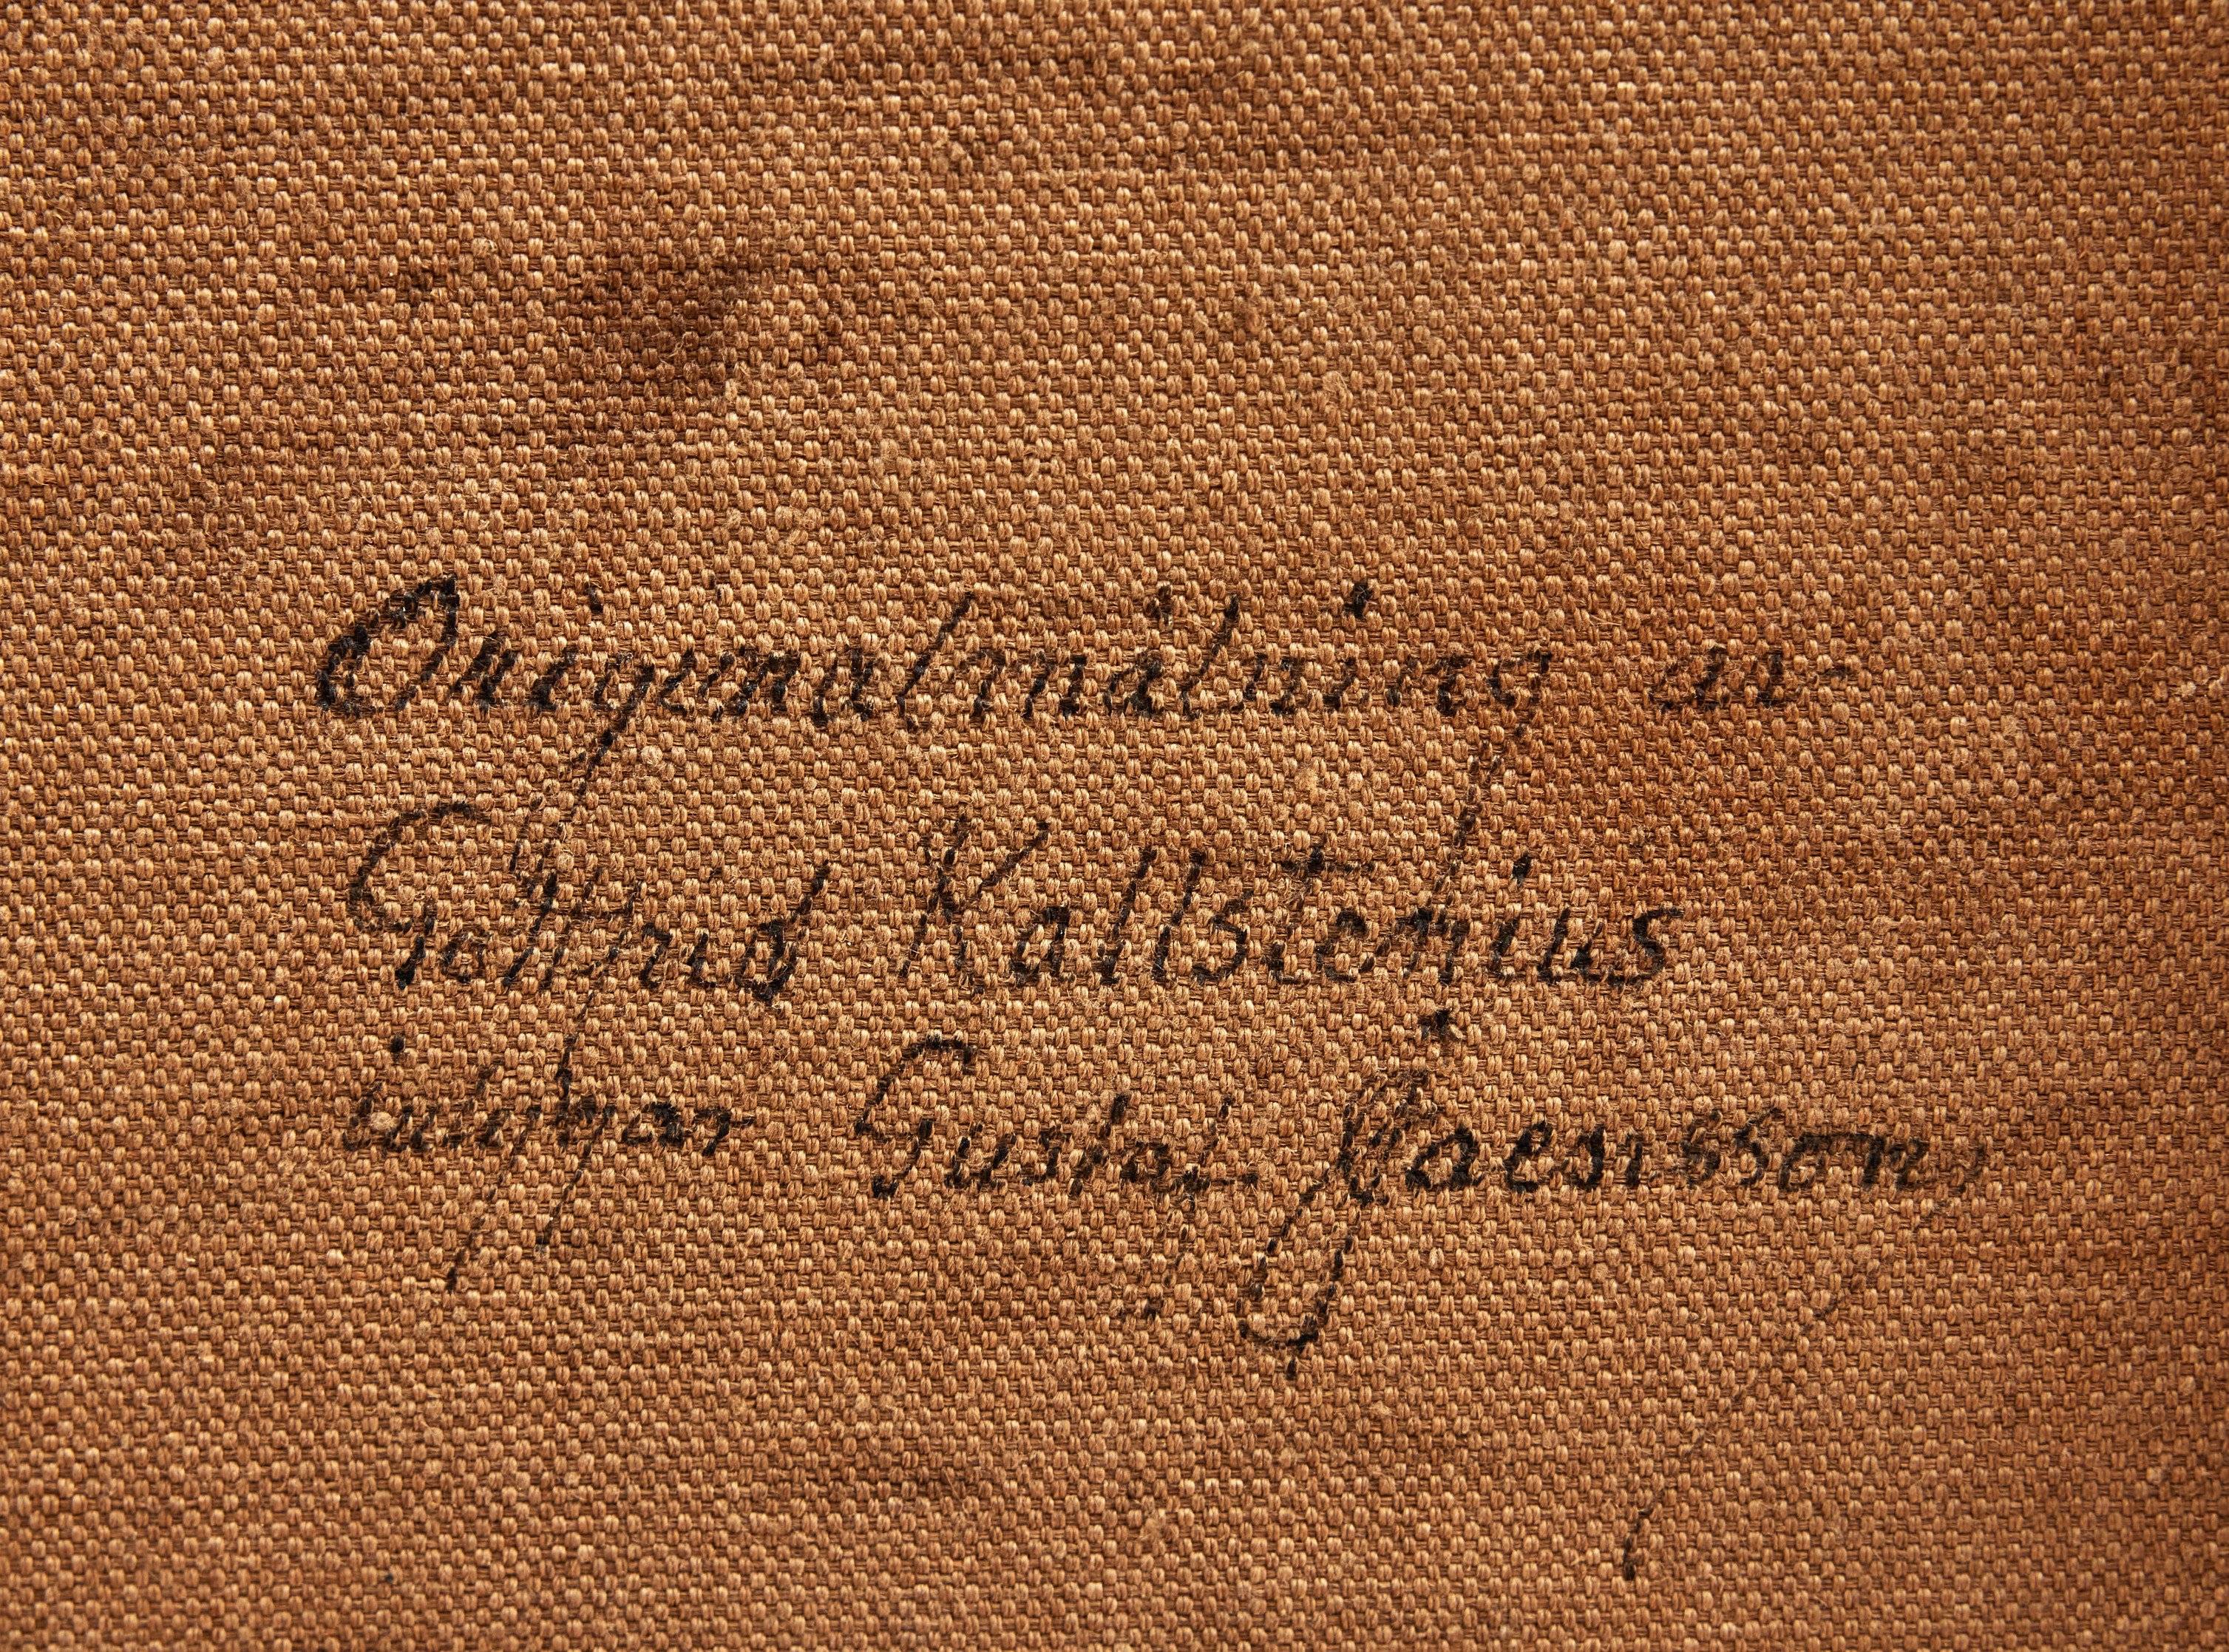 Originalmålning av
Gottfrid Kallstenius
intygar Gustaf Jaensson